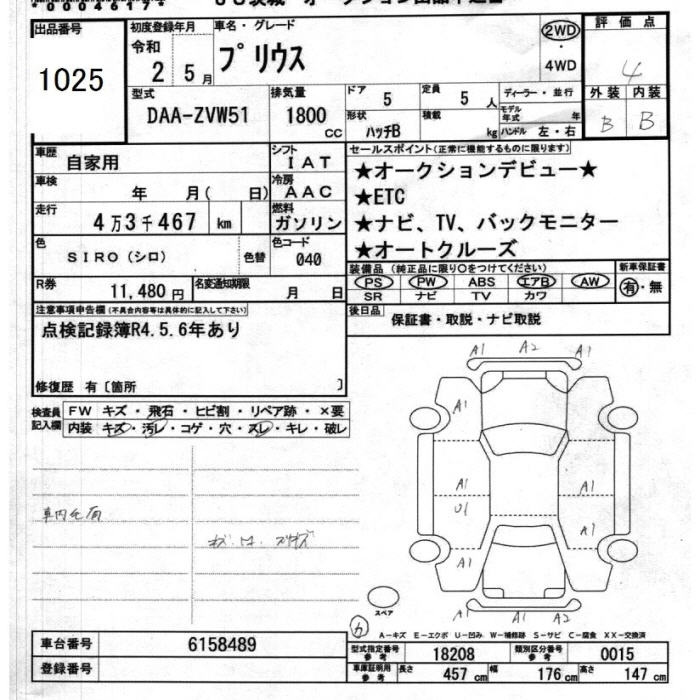 00040171
出品番号
1025
初度登録年月
令和
2 5月
車名・グレード
プリウス
2WD
・
4WD
評価点
4
外装 内装
B B
型式
DAA-ZVW51
排気量
1800
CC
ドア 5
定員 5 人
形状 ハッチB
積載 kg
ディーラー・並行
モデル年式 年
ハンドル 左・右
車歴 自家用
シフト IAT
車検 年 月( 日)
冷房 AAC
走行 4万3千467 km
燃料 ガソリン
色 SIRO(シロ) 色替
色コード 040
R券 11,480円
名変通知期限 月 日
セールスポイント(正常に機能するものに限ります)
★オークションデビュー★
★ETC
★ナビ、TV、バックモニター
★オートクルーズ
装備品(純正品に限り○をつけてください)
PS PW ABS エアB AW
SR ナビ TV カワ
新車保証書
有・無
後日品 保証書・取説・ナビ取説
注意事項申告欄(不具合内容等は具体的に記入して下さい)
点検記録簿R4.5.6年あり
修復歴 有〔箇所 〕
検査員記入欄
FW キズ・飛石・ヒビ割・リペア跡・×要
内装 キズ・汚レ・コゲ・穴・スレ・キレ・破レ
A1 A2 A1
A1
A1 A1
U1
A1
A1
A1 A1 A2
スペア
A-キズ E-エクボ U-凹み W-補修跡 S-サビ C-腐食 XX-交換済
車台番号 6158489
登録番号
型式指定番号 参考 18208
類別区分番号 参考 0015
車庫証明用 参考 長さ 457 cm 幅 176 cm 高さ 147 cm